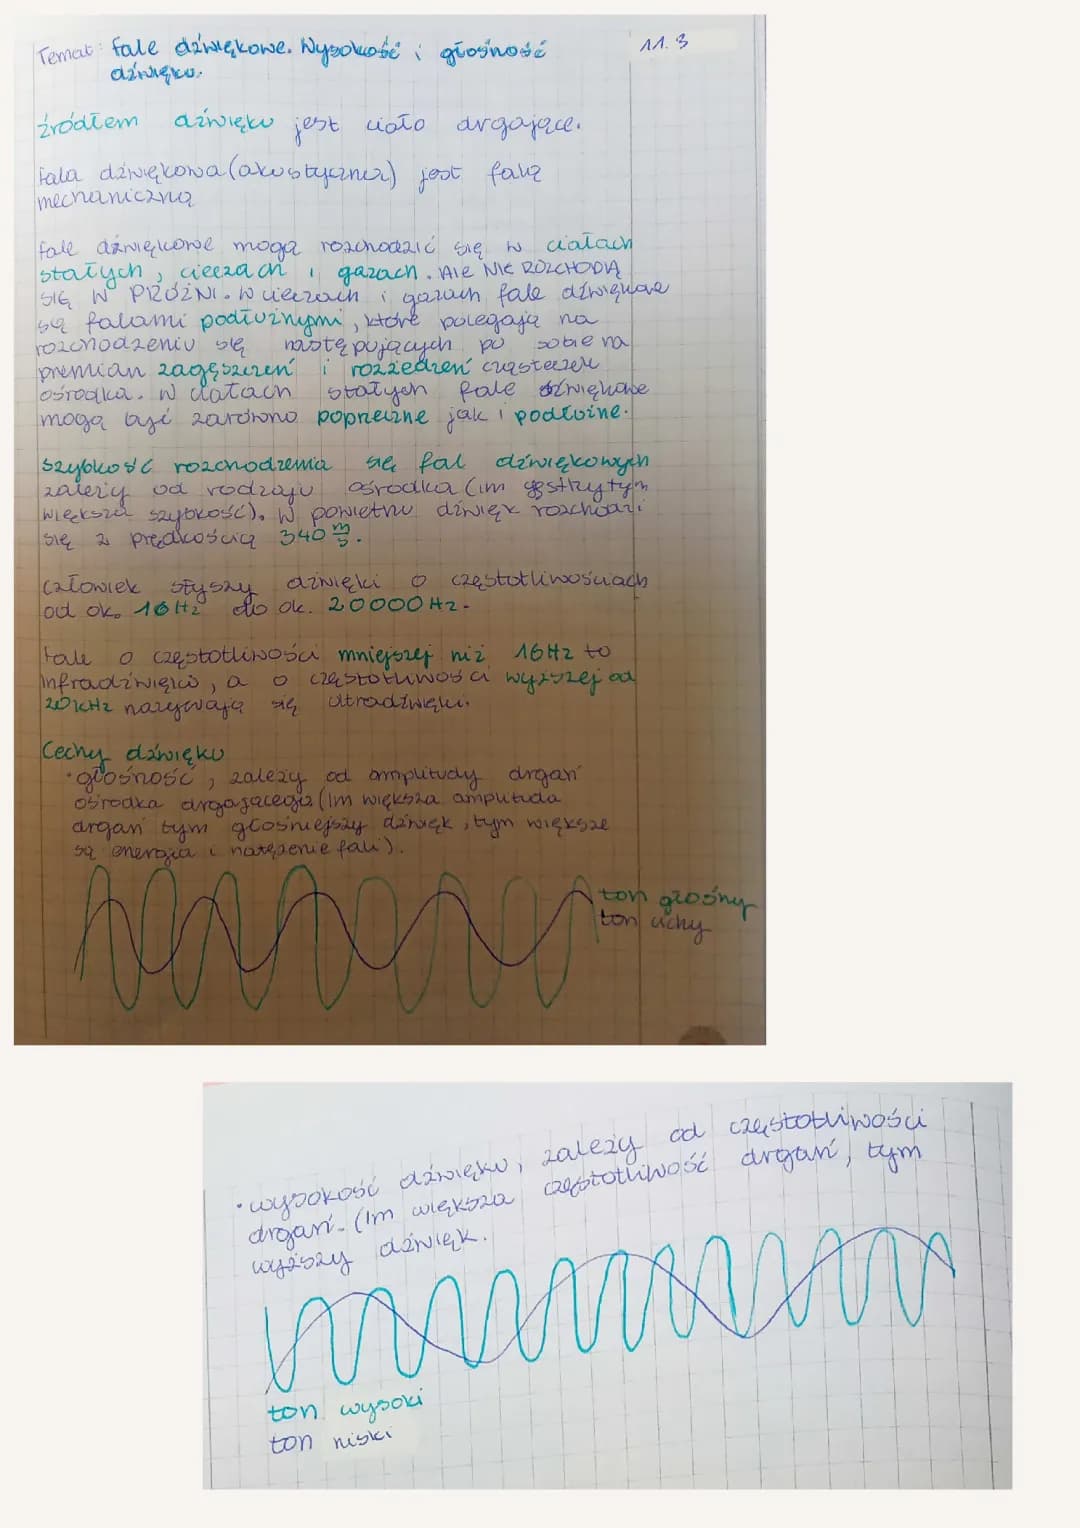 Temat: fale dźwiękowe. Wysokość i głośność
dźwięku.
11.3
źródłem dźwięku jest ciało drgające.
fala dźwiękowa (akustyczna) jest falą
mechaniczną
fale dźwiękowe mogą rozchodzić się w ciałach
stałych, cieczach i gazach. Ale NIE ROZCHODZĄ
SIĘ W PRÓŻNI. W cieczach i gazach fale dźwiękowe
są falami podłużnymi, które polegają na
rozchodzeniu się następujących po sobie na
przemian zagęszczeń i rozrzedzeń cząsteczek
ośrodka. W ciałach stałych fale dźwiękowe
mogą być zarówno poprzeczne jak i podłużne.
szybkość rozchodzenia się fal dźwiękowych
zależy od rodzaju ośrodka (im gęstszy tym
większa szybkość). W powietrzu dźwięk rozchodzi
się z prędkością 340 m/s.
człowiek słyszy dźwięki o częstotliwościach
od ok. 16Hz do ok. 20000Hz.
fale o częstotliwości mniejszej niż 16Hz to
infradźwięki, a o częstotliwości wyższej od
20kHz nazywają się ultradźwięki.
Cechy dźwięku
• głośność, zależy od amplitudy drgań
ośrodka drgającego (im większa amplituda
drgań tym głośniejszy dźwięk, tym większe
są energia i natężenie fali).
ton głośny
ton cichy
• wysokość dźwięku, zależy od częstotliwości
drgań. (Im większa częstotliwość drgań, tym
wyższy dźwięk.
ton wysoki
ton niski